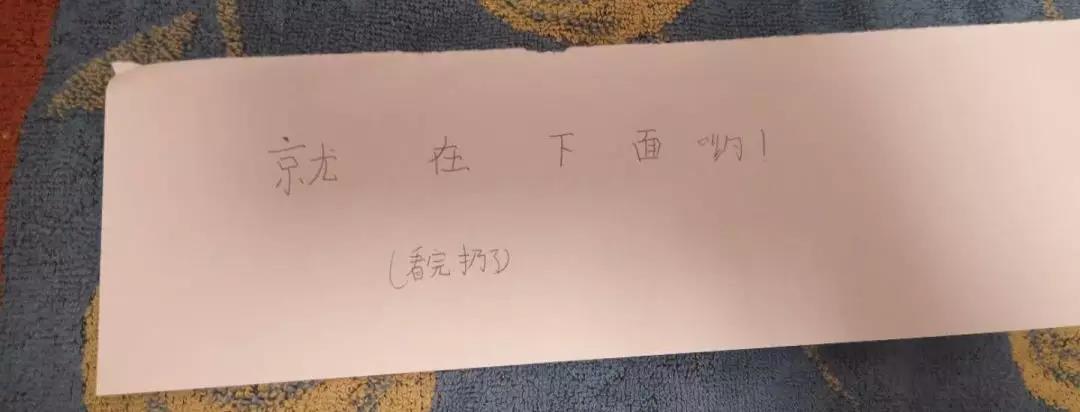 就在下面哟!
(看完扔了)